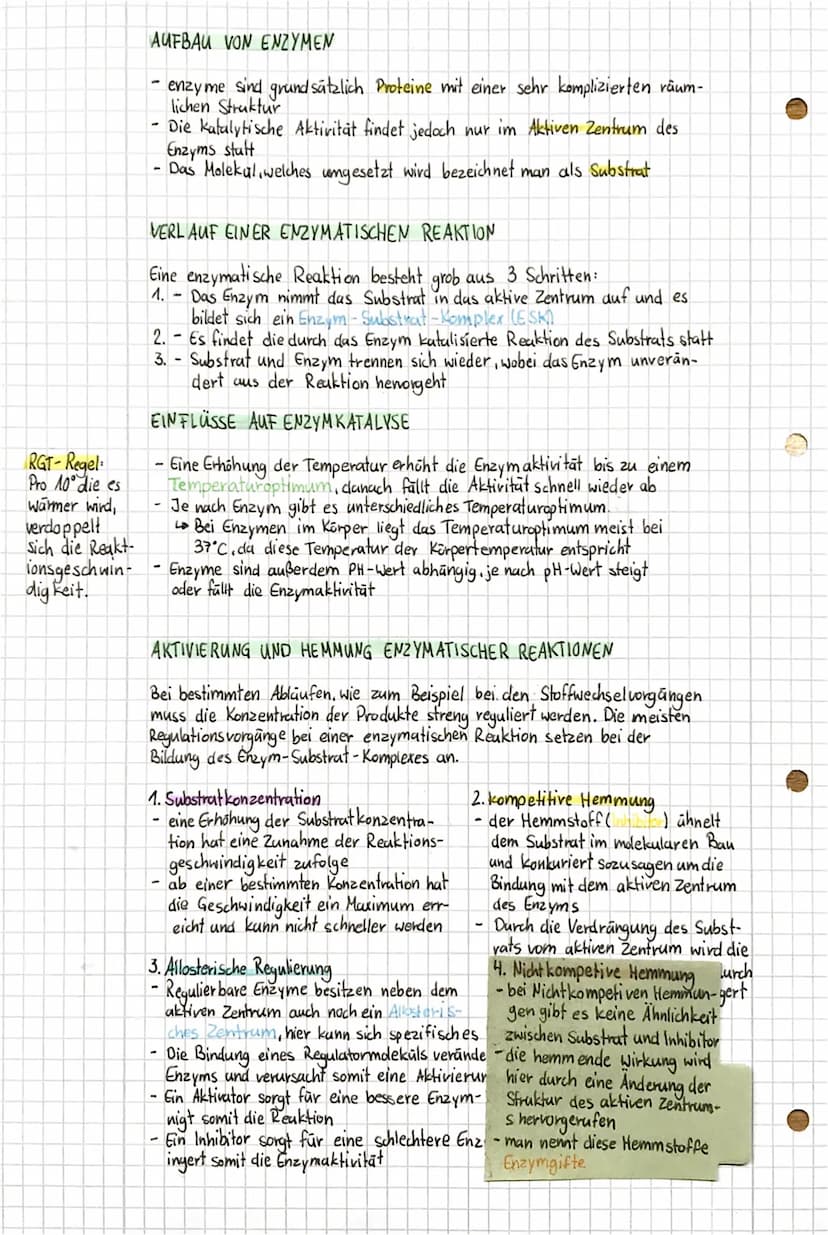 AUFBAU VON ENZYMEN
- enzyme sind grundsätzlich Proteine mit einer sehr komplizierten räum-
lichen Struktur
- Die katalytische Aktivität findet jedoch nur im Aktiven Zentrum des
Enzyms statt
- Das Molekül, welches umgesetzt wird bezeichnet man als Substrat
VERLAUF EINER ENZYMATISCHEN REAKTION
Eine enzymatische Reaktion besteht grob aus 3 Schritten:
1. - Das Enzym nimmt das Substrat in das aktive Zentrum auf und es
bildet sich ein Enzym-Substrat-Komplex (ESK)
2. - Es findet die durch das Enzym katalisierte Reaktion des Substrats statt
3. - Substrat und Enzym trennen sich wieder, wobei das Enzym unverän-
dert aus der Reaktion hervorgeht
EINFLÜSSE AUF ENZYMKATALYSE
RGT-Regel:
Pro 10° die es
wärmer wird,
verdoppelt
sich die Reakt-
ionsgeschwin-
digkeit.
- Eine Erhöhung der Temperatur erhöht die Enzymaktivität bis zu einem
Temperaturoptimum, danach fällt die Aktivität schnell wieder ab
- Je nach Enzym gibt es unterschiedliches Temperaturoptimum.
↳ Bei Enzymen im Körper liegt das Temperaturoptimum meist bei
37°C, da diese Temperatur der Körpertemperatur entspricht
- Enzyme sind außerdem PH-Wert abhängig, je nach pH-Wert steigt
oder fällt die Enzymaktivität
AKTIVIERUNG UND HEMMUNG ENZYMATISCHER REAKTIONEN
Bei bestimmten Abläufen, wie zum Beispiel bei den Stoffwechselvorgängen
muss die Konzentration der Produkte streng reguliert werden. Die meisten
Regulationsvorgänge bei einer enzymatischen Reaktion setzen bei der
Bildung des Enzym-Substrat-Komplexes an.
1. Substratkonzentration
- eine Erhöhung der Substratkonzentra-
tion hat eine Zunahme der Reaktions-
geschwindigkeit zufolge
- ab einer bestimmten Konzentration hat
die Geschwindigkeit ein Maximum err-
eicht und kann nicht schneller werden
2. kompetitive Hemmung
- der Hemmstoff (Inhibitor) ähnelt
dem Substrat im molekularen Bau
und konkuriert sozusagen um die
Bindung mit dem aktiven Zentrum
des Enzyms
- Durch die Verdrängung des Subst-
rats vom aktiven Zentrum wird die
durch
gert
3. Allosterische Regulierung
- Regulierbare Enzyme besitzen neben dem
aktiven Zentrum auch noch ein Allosteris-
ches Zentrum, hier kann sich spezifisches
- Die Bindung eines Regulatormoleküls verände
Enzyms und verursacht somit eine Aktivierun
- Ein Aktivator sorgt für eine bessere Enzym-
nigt somit die Reaktion
- Ein Inhibitor sorgt für eine schlechtere Enz
ingert somit die Enzymaktivität
4. Nichtkompetive Hemmung
- bei Nichtkompetiven Hemmun-
gen gibt es keine Ähnlichkeit
zwischen Substrat und Inhibitor
- die hemmende Wirkung wird
hier durch eine Änderung der
Struktur des aktiven Zentrum-
s hervorgerufen
- man nennt diese Hemmstoffe
Enzymgifte